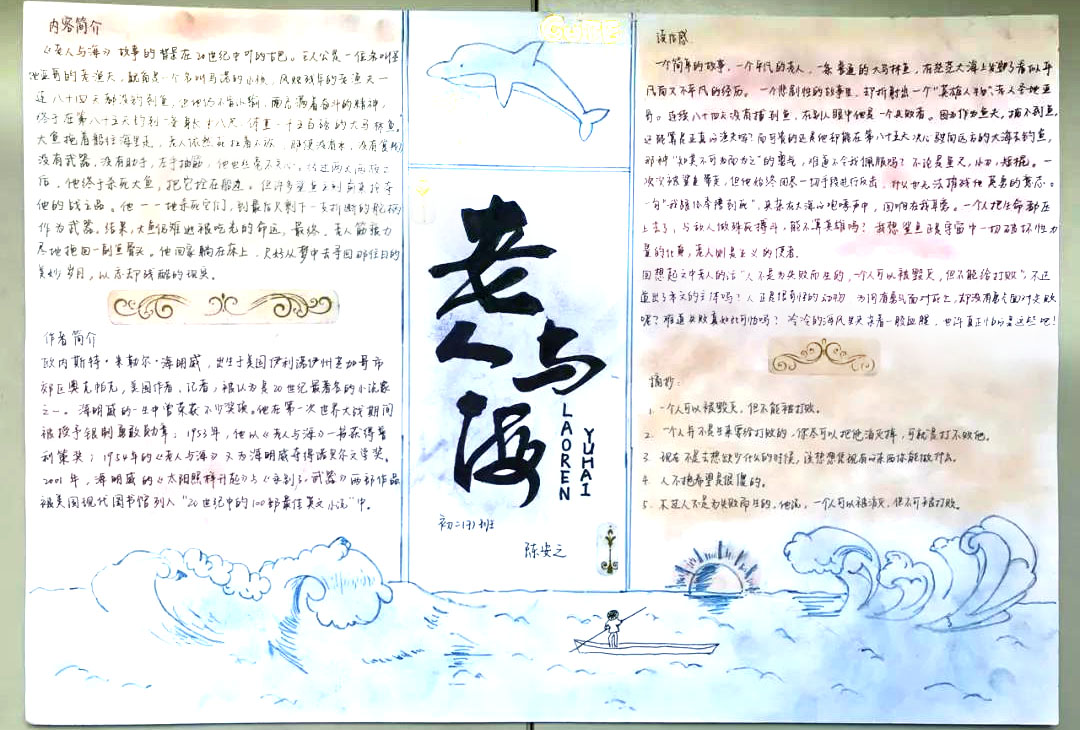 内容简介
《老人与海》故事的背景在20世纪中叶的古巴。主人公是一位名叫圣
地亚哥的老渔夫,配角是一个名叫马诺林的小孩。风烛残年的老渔夫一
连八十四天都没钓到鱼,但他仍不肯认输,而充满着奋斗的精神,
终于在第八十五天钓到一条身长十八尺,体重一千五百磅的大马林鱼。
大鱼拖着船往海里走,老人依然死拉着不放,即使没有水,没有食物,
没有武器,没有助手,左手抽筋,他也丝毫不灰心。经过两天两夜之
后,他终于杀死大鱼,把它拴在船边。但许多鲨鱼立刻前来抢夺
他的战立品。他一一地杀死它们,到最后只剩下一支折断的舵柄
作为武器。结果,大鱼仍难逃被吃光的命运。最终,老人筋疲力
尽地拖回一副鱼骨头。他回家躺在床上,只好从梦中去寻回那往日的
美妙岁月,以忘却残酷的现实。
作者简介
欧内斯特·米勒尔·海明威,出生于美国伊利诺伊州芝加哥市
郊区奥克帕克,美国作者,记者,被认为是20世纪最著名的小说家
之一。海明威的一生中曾荣获不少奖项。他在第一次世界大战期间
被授予银制勇敢勋章;1953年,他以《老人与海》一书获得普
利策奖;1954年的《老人与海》又为海明威夺得诺贝尔文学奖。
2001年,海明威的《太阳照样升起》与《永别了,武器》两部作品
被美国现代图书馆列入"20世纪中的100部最佳英文小说"中。
老人与海
LAOREN
YUHAI
初二(3)班
陈安之
读后感
一个简单的故事,一个平凡的老人,一条普通的大马林鱼,在茫茫大海上发生了看似平
凡而又不平凡的经历。一个悲剧性的故事里,却折射出一个"英雄人物":老人圣地亚
哥。连续八十四天没有捕到鱼,在别人眼中他是一个失败者。因为作为渔夫,捕不到鱼,
还能算是真正的渔夫吗?而可贵的还是他却能在第八十五天决心驶向远方的大海去钓鱼,
那种"知其不可为而为之"的勇气,难道不令我佩服吗?不论是鱼叉,小刀,短棍。一
次次被鲨鱼带走,但他始终用尽一切手段进行反击,什么也无法摧残他英勇的意志。
一句"我跟你奉陪到死",夹杂在大海的咆哮声中,回响在我耳旁。一个人把生命都压
上去了,与敌人做殊死搏斗,能不算英雄吗?我想鲨鱼正是宇宙中一切破坏性力
量的化身,老人则是正义的使者。
回想起文中老人的话"人不是为失败而生的,一个人可以被毁灭,但不能给打败",不正
道出了本文的主体吗?人正是很奇怪的动物
嘿?难道失败真如此可怕吗?
摘抄:
1. 一个人可以被毁灭,但不能被打败。
2. 一个人并不是生来要给打败的,你尽可以把他消灭掉,可就是打不败他。
3. 现在不是去想缺少什么的时候,该想想凭现有的东西你能做什么。
4. 人不抱希望是很傻的。
5. 不过人不是为失败而生的,他说,一个人可以被消灭,但不可被打败。